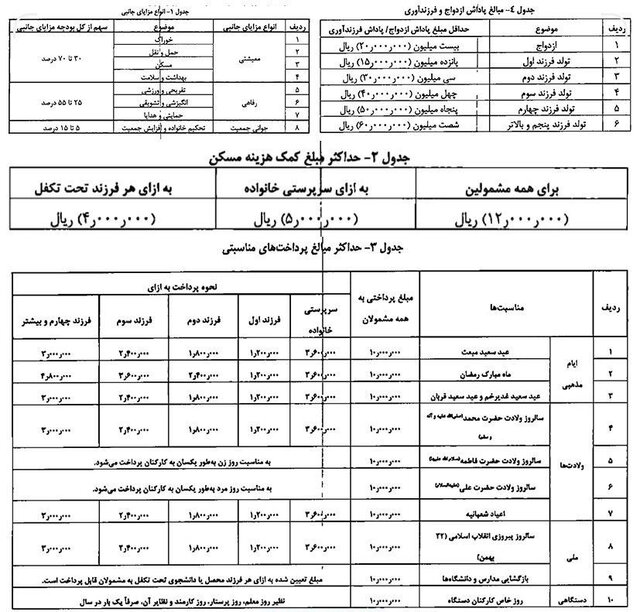 جدول ۴- مبالغ پاداش ازدواج و فرزندآوری
ردیف موضوع حداقل مبلغ پاداش ازدواج/ پاداش فرزندآوری
۱ ازدواج بیست میلیون (۲۰٫۰۰۰٫۰۰۰) ریال
۲ تولد فرزند اول پانزده میلیون (۱۵٫۰۰۰٫۰۰۰) ریال
۳ تولد فرزند دوم سی میلیون (۳۰٫۰۰۰٫۰۰۰) ریال
۴ تولد فرزند سوم چهل میلیون (۴۰٫۰۰۰٫۰۰۰) ریال
۵ تولد فرزند چهارم پنجاه میلیون (۵۰٫۰۰۰٫۰۰۰) ریال
۶ تولد فرزند پنجم و بالاتر شصت میلیون (۶۰٫۰۰۰٫۰۰۰) ریال
جدول ۱- انواع مزایای جانبی
ردیف موضوع انواع مزایای جانبی سهم از کل بودجه مزایای جانبی
۱ خوراک معیشتی ۳۰ تا ۷۰ درصد
۲ حمل و نقل
۳ مسکن
۴ بهداشت و سلامت
۵ تفریحی و ورزشی رفاهی ۲۵ تا ۵۵ درصد
۶ انگیزشی و تشویقی
۷ حمایتی و هدایا
۸ تحکیم خانواده و افزایش جمعیت جوانی جمعیت ۵ تا ۱۵ درصد
جدول ۲- حداکثر مبلغ کمک هزینه مسکن
برای همه مشمولین به ازای سرپرستی خانواده به ازای هر فرزند تحت تکفل
(۱۲٫۰۰۰٫۰۰۰) ریال (۵٫۰۰۰٫۰۰۰) ریال (۴٫۰۰۰٫۰۰۰) ریال
جدول ۳- حداکثر مبالغ پرداخت‌های مناسبتی
ردیف مناسبت‌ها مبلغ پرداختی به همه مشمولان نحوه پرداخت به ازای
سرپرستی خانواده فرزند اول فرزند دوم فرزند سوم فرزند چهارم و بیشتر
ایام مذهبی
۱ عید سعید مبعث ۱۰٫۰۰۰٫۰۰۰ ۳٫۶۰۰٫۰۰۰ ۱٫۲۰۰٫۰۰۰ ۱٫۸۰۰٫۰۰۰ ۲٫۴۰۰٫۰۰۰ ۳٫۰۰۰٫۰۰۰
۲ ماه مبارک رمضان ۱۰٫۰۰۰٫۰۰۰ ۳٫۶۰۰٫۰۰۰ ۱٫۲۰۰٫۰۰۰ ۲٫۴۰۰٫۰۰۰ ۳٫۶۰۰٫۰۰۰ ۴٫۸۰۰٫۰۰۰
۳ عید سعید غدیرخم و عید سعید قربان ۱۰٫۰۰۰٫۰۰۰ ۳٫۶۰۰٫۰۰۰ ۱٫۲۰۰٫۰۰۰ ۱٫۸۰۰٫۰۰۰ ۲٫۴۰۰٫۰۰۰ ۳٫۰۰۰٫۰۰۰
ولادت‌ها
۴ سالروز ولادت حضرت محمد (صلی‌الله علیه و آله و سلم) ۱۰٫۰۰۰٫۰۰۰ ۳٫۶۰۰٫۰۰۰ ۱٫۲۰۰٫۰۰۰ ۱٫۸۰۰٫۰۰۰ ۲٫۴۰۰٫۰۰۰ ۳٫۰۰۰٫۰۰۰
۵ سالروز ولادت حضرت فاطمه (سلام‌الله علیها) ۱۰٫۰۰۰٫۰۰۰ به مناسبت روز زن به‌طور یکسان به کارکنان پرداخت می‌شود.
۶ سالروز ولادت حضرت علی (علیه‌السلام) ۱۰٫۰۰۰٫۰۰۰ به مناسبت روز مرد به‌طور یکسان به کارکنان پرداخت می‌شود.
۷ اعیاد شعبانیه ۱۰٫۰۰۰٫۰۰۰ ۳٫۶۰۰٫۰۰۰ ۱٫۲۰۰٫۰۰۰ ۱٫۸۰۰٫۰۰۰ ۲٫۴۰۰٫۰۰۰ ۳٫۰۰۰٫۰۰۰
ملی
۸ سالروز پیروزی انقلاب اسلامی (۲۲ بهمن) ۱۰٫۰۰۰٫۰۰۰ ۳٫۶۰۰٫۰۰۰ ۱٫۲۰۰٫۰۰۰ ۱٫۸۰۰٫۰۰۰ ۲٫۴۰۰٫۰۰۰ ۳٫۰۰۰٫۰۰۰
۹ بازگشایی مدارس و دانشگاه‌ها ۱۰٫۰۰۰٫۰۰۰ مبلغ تعیین شده به ازای هر فرزند محصل یا دانشجوی تحت تکفل به مشمولان قابل پرداخت است.
۱۰ دستگاهی روز خاص کارکنان دستگاه ۱۰٫۰۰۰٫۰۰۰ نظیر روز معلم، روز پرستار، روز کارمند و نظایر آن، صرفاً یک بار در سال